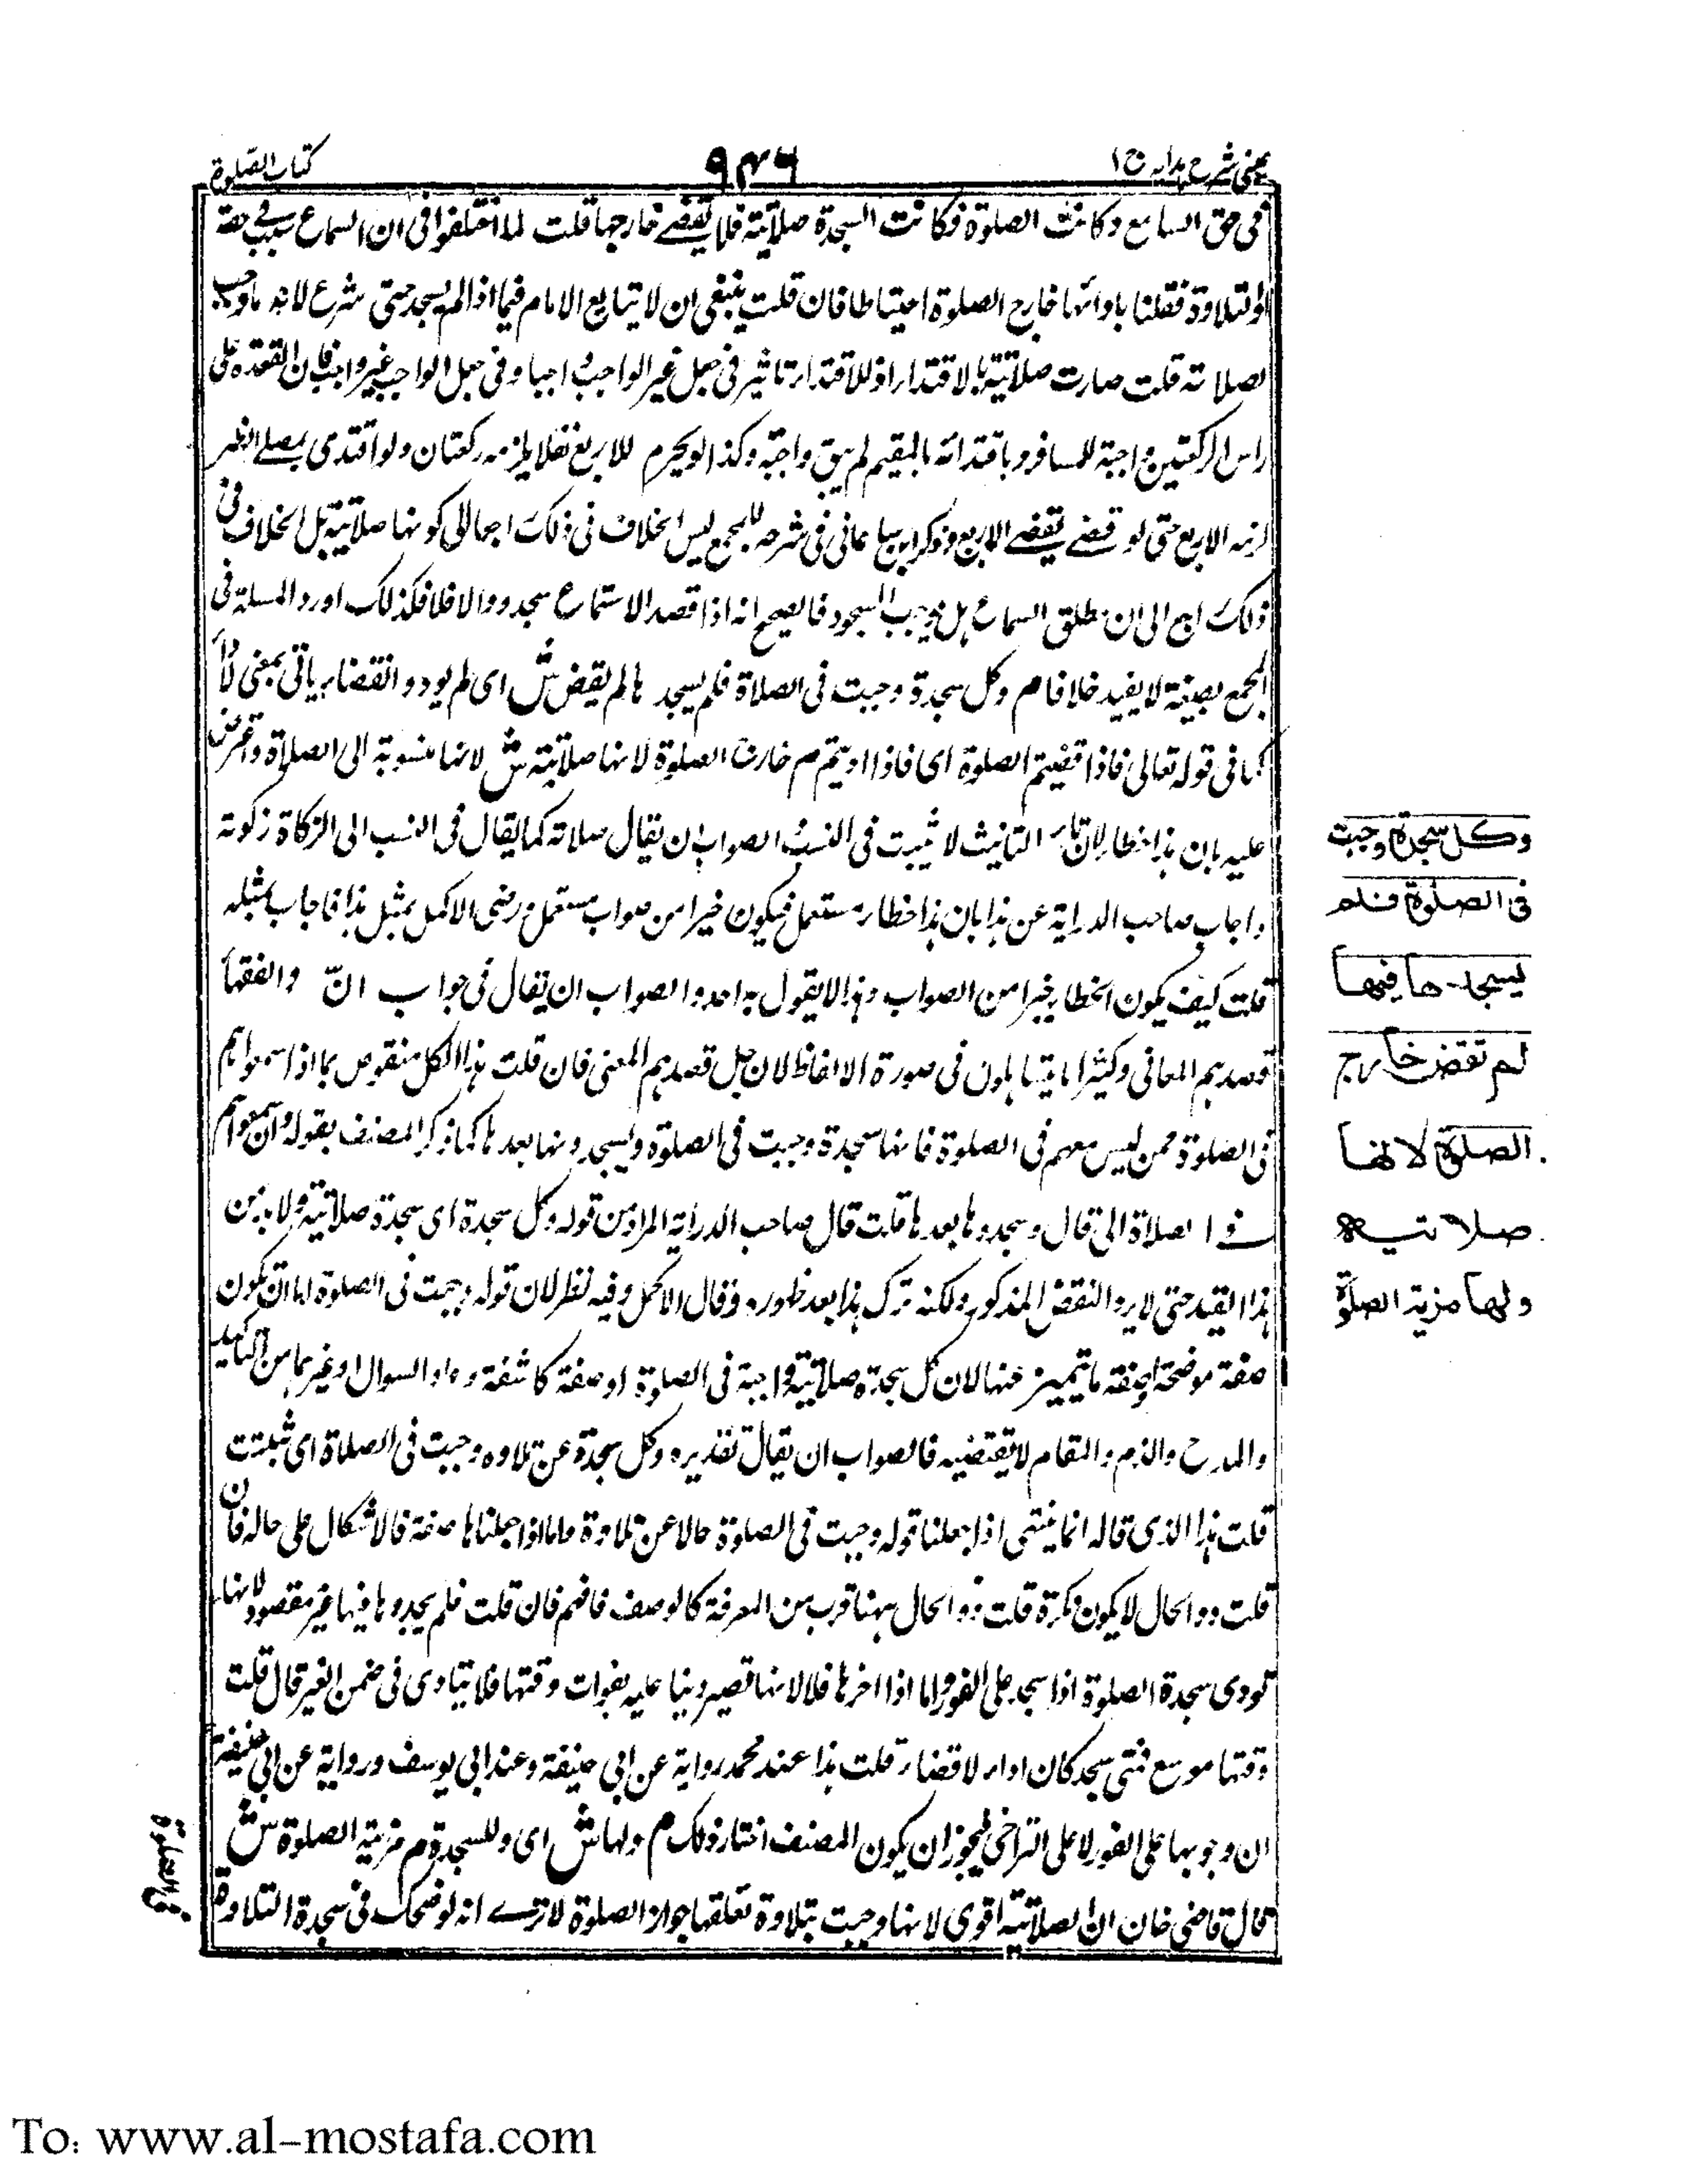 عینی شرح ہدایہ ج ۱
۹۳۶
کتاب الصلوۃ
فی حق السامع وکانت الصلوة فکانت السجدة صلاتیة فلا یقضے خارجہا قلت لما اختلفوا فی ان السماع سبب فی حقہ
او التلاوة فقلنا بادائہا خارج الصلوة احتیاطا فان قلت ینبغی ان لا یتابع الامام فیما اذا لم یسجد حتی شرع لانہ ما وجب
بصلاتہ قلت صارت صلاتیة بالاقتداء اذ للاقتداء تاثیر فی جعل غیر الواجب واجبا و فی جعل الواجب غیر واجب فان القعدة علی
راس الرکعتین واجبة للمسافر و باقتدائہ بالمقیم لم یبق واجبة وکذا لو یحرم للاربع نفلا یلزمہ رکعتان ولو اقتدی بمصلے الظہر
لزمہ الاربع حتی لو قضے یقضے الاربع و ذکر فی شرحہ للمجمع لیس الخلاف فی ذلک اجعا الی کونہا صلاتیة بل الخلاف فی
ذلک راجع الی ان مطلق السماع ہل یوجب السجود فالصحیح انہ اذا قصد الاستماع سجدو والا فلا فکذلک اورد المسئلة فی
المجمع بصیغة لا یفید خلافا م وکل سجدة وجبت فی الصلاة فلم یسجد ہا لم یقض ش ای لم یود والقضاء یاتی بمعنی الاداء
کما فی قولہ تعالی فاذا قضیتم الصلوة ای فاذا ادیتم م خارج الصلوة لانہا صلاتیة ش لانہا منسوبة الی الصلاة واعترض
علیہ بان ہذا خطاء لان تاء التانیث لا تثبت فی النسب الصواب ان یقال صلاتہ کما یقال فی النسب الی الزکاة زکوتہ
واجاب صاحب الدرایة عن ہذا بان ہذا خطاء مستعمل فیکون خیرا من صواب مستعمل ورضی الاکمل بمثل ہذا فاجاب بمثلہ
قلت کیف یکون الخطاء خیرا من الصواب وہذا لا یقول بہ احد والصواب ان یقال فی جواب انّ والفقہا
قصدہم المعانی وکثیرا ما یتساہلون فی صورة الالفاظ لان جل قصدہم المعنی فان قلت ہذا الکل منقوض بما اذا سمعوا ہم
فی الصلوة ممن لیس معہم فی الصلوة فانہا سجدة وجبت فی الصلوة ویسجدونہا بعدہا کما ذکر المصنف بقولہ وان سمعوا ہم
فی الصلاة الی قال وسجدوہا بعدہا قلت قال صاحب الدرایة المراد من قولہ وکل سجدة ای سجدة صلاتیة ولا بد من
ہذا القید حتی لا یرد النقض المذکور ولکنہ ترک ہذا بعد ظہورہ وقال الاکمل وفیہ نظر لان قولہ وجبت فی الصلوة اما ان تکون
صفة موضحة ما یتمیز عنہا لان کل سجدة صلاتیة واجبة فی الصلوة او صفة کاشفة وہو السوال او غیرہما من التاکید
والمدح والذم والمقام لا یقتضیہ فالصواب ان یقال تقدیرہ وکل سجدة عن تلاوہ وجبت فی الصلاة ای ثبتت
قلت ہذا الذی قالہ انما یتمشی اذا جعلنا قولہ وجبت فی الصلوة حالا عن تلاوة واما اذا جعلناہا صفة فالاشکال علی حالہ فان
قلت ذو الحال لا یکون نکرة قلت ذو الحال ہہنا قرب من المعرفة کالوصف فافہم فان قلت فلم یسجدوہا فیہا غیر مقصود لانہا
تودی سجدة الصلوة اذا سجد علی الفور واما اذا اخرہا فلا لانہا تصیر دینا علیہ بفوات وقتہا فلا یتادی فی ضمن الغیر قال قلت
وقتہا موسع فمتی سجد کان اداء لا قضاء قلت ہذا عند محمد روایة عن ابی حنیفة وعند ابی یوسف وروایة عن ابی حنیفة
ان وجوبہا علی الفور لا علی التراخی فیجوز ان یکون المصنف اختار ذلک م ولہا ش ای وللسجدة م مزیة الصلوة ش
قال قاضی خان ان الصلاتیة اقوی لانہا وجبت بتلاوة تعلقہا جواز الصلوة لا ترے انہ لو ضحک فی سجدة التلاوة
وکل سجدة وجبت
فی الصلوة فلم
یسجدها فیها
لم تقض خارج
الصلوة لانها
صلاتیه
ولها مزیة الصلوة
فی الصلوة
To: www.al-mostafa.com